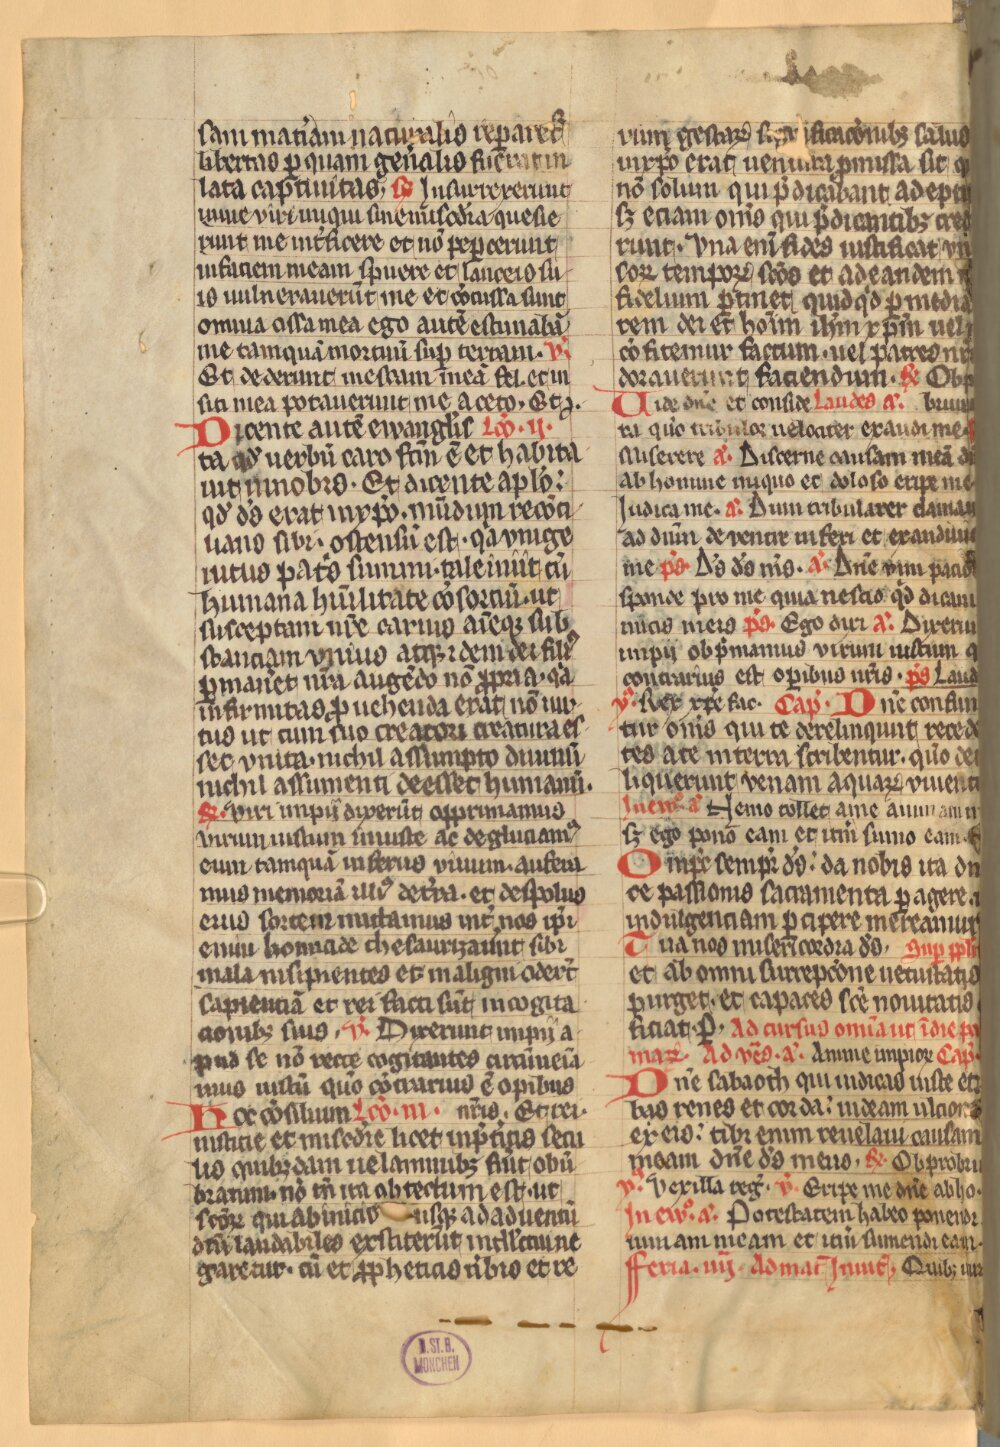 sam mat̾iam naturalis reparet᷑
libertas ꝑ quam gen̄alis fuerat in
lata captiuitas, R̷ Insurrexerunt
in me viri iniqui sine mīscďia quesie
runt me int̾ficere et nō peꝑcerunt
in faciem meam spuere et lanceis su
is uulnerauerūt me et ↄ̄cussa sunt
omnia ossa mea ego autē estimabā
me tamquā mortuū suꝑ terram. V᷑.
Et dederunt in escam meā fel. et in
siti mea potauerunt me aceto, Et ꝓ.
Dicente autē ewanglīs Lc̄o. ij.
ta qď uerbū caro fc̄m ē et habita
uit in nobis. Et dicente apl̄o:
qď ďs erat in xp̄o. mūdum recōci
lians sibi. ostensū est. qa̾ vnige
nitus pat̾s summi. tale iniit cū
humana hūilitate cōsorciū. ut
suscepta nr̄e carnis aīeqꝫ sub
stanciam vnius atqꝫ idem dei filiꝰ
ꝑmaneret nr̄a augēdo nō ꝓpria. qa̾
infirmitas ꝓuehenda erat nō uir
tus ut cum suo creatori creatura es
set vnita. nichil assumpto diuinū
nichil assumenti deesset humanū.
R̷. viri impij dixerūt opprimamus
virum iustum iniuste ac degluciamꝰ
eum tamquā infernus viuum. aufera
mus memoriā illiꝰ de tr̄ra. et de spoliis
eius sortem mittamus int̾ nos ip̄i
enim homicide thesaurizaūt sibi
mala insipientes et maligni oder̄t
sapienciā et rei facti sūt in cogita
cionibꝫ suis, V᷑. Dixerunt impij a
pud se nō recte cogitantes circūuenia
mus iustū quo̅ cōtrarius ē opibus
Hoc cōsilium Lc̄o. iii. nr̄is. Et rei.
iusticie et miscďie licet in p̄t̾itis secu
lis quibꝫdam uelaminibꝫ fuīt obū
bratum. nō tn̄ ita obtectum est. ut
sc̄oꝝ qui ab inicio usqꝫ ad aduentū
dn̄i laudabiles exstiterūt intlc̄ciū ne
garetur. cū et ꝓpheticis ub̾is et re
rum gestaꝝ significac̄onibꝫ salus
in xp̄o erat uentura ꝓmissa sit q
nō solum qui p̄dicabant adepti
sꝫ eciam om̄s qui p̄dicantibꝫ cred
runt. Vna eni̅ fides iustificat vni
soꝝ tempoꝝ sc̄os et ad eandem s
fidelium ꝑtinet, quidqͥd ꝑ media
rem dei et hoīm ih̄m xp̄m uel
cōfitemur factum. uel patres nr̄i
dorauerunt faciendum. R̷ Obp
Uide dn̄e et conside Laudes a᷑. brium
ra quo̅ tribulor uelociter exaudi me.
Miserere a᷑. Discerne causam meā dn̄
ab homine iniquo et doloso eripe me
Judica me. a᷑. Dum tribularer clamaui
ad dūm de ventre inferi et exaudiuit
me pš. Ds̄ ďs ms̄. a᷑. Dn̄e vim pacior
sponde pro me quia nescio qͥd dicam
nicis meis pš. Ego dixi a᷑. Dixerun
impij obp̄mamus virum iustum q
contrarius est opibus nr̄is. pš Laud
V᷑. Rex xp̄e fac. Cap. Dn̄e confun
tur om̄s qui te derelinquunt recede
tes a te in terra scribentur. quo̅ de
liquerunt venam aquaꝝ viuenti
In ew. a᷑. Nemo tollet a me animam m
sꝫ ego pono eam et itū sumo eam. E
Omp̄s semp̄r ds̄: da nobis ita dn
ce passionis sacramenta peragere.
indulgenciam ꝑcipere mereamur
Tua nos misericordia ds̄. Sup ppl̄
et ab omni surrepc̄one uetustatis
purget. et capaces sc̄e nouitatis
ficiat. P. Ad cursus om̄ia ut ī die pal
maꝝ. Ad vēš. a᷑. Anime impior Cap.
Dn̄e sabaoth qui iudicas iuste et
bas renes et corda: uideam ulcione
ex eis: tibi enim reuelaui causam
meam dn̄e ds̄ meus, R̷. Obprobriu
V᷑. Vexilla reg̾. V᷑. Eripe me dn̄e ab ho.
In ew. a᷑. Potestatem habeo ponendi
nimam meam et itū sumendi eam.
Feria. iiij. Ad mat̄ Inuit̄, Quibꝫ iur
B.ST.B.
MÜNCHEN